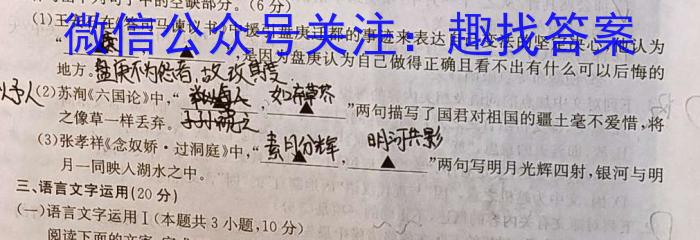 微信公众号关注：趣找答案
(1)王安石在《答司马谏议书》中援引盘庚迁都的事迹来表达自己变法的坚定决心,他认为
"▲,▲",是因为盘庚认为自己做得正确且看不出有什么可以后悔的
地方。盘庚不为怨者,故改其度
以予人
(2)苏洵《六国论》中,"▲,如弃草芥▲"两句描写了国君对祖国的疆土毫不爱惜,将
之像草一样丢弃。子孙视之
(3)张孝祥《念奴娇·过洞庭》中,"素月分辉▲,明河共影▲"两句写明月光辉四射,银河与明
月一同映入湖水之中。
三、语言文字运用(20分)
(一)语言文字运用Ⅰ(本题共3小题,10分)
阅读下面的文字,完成